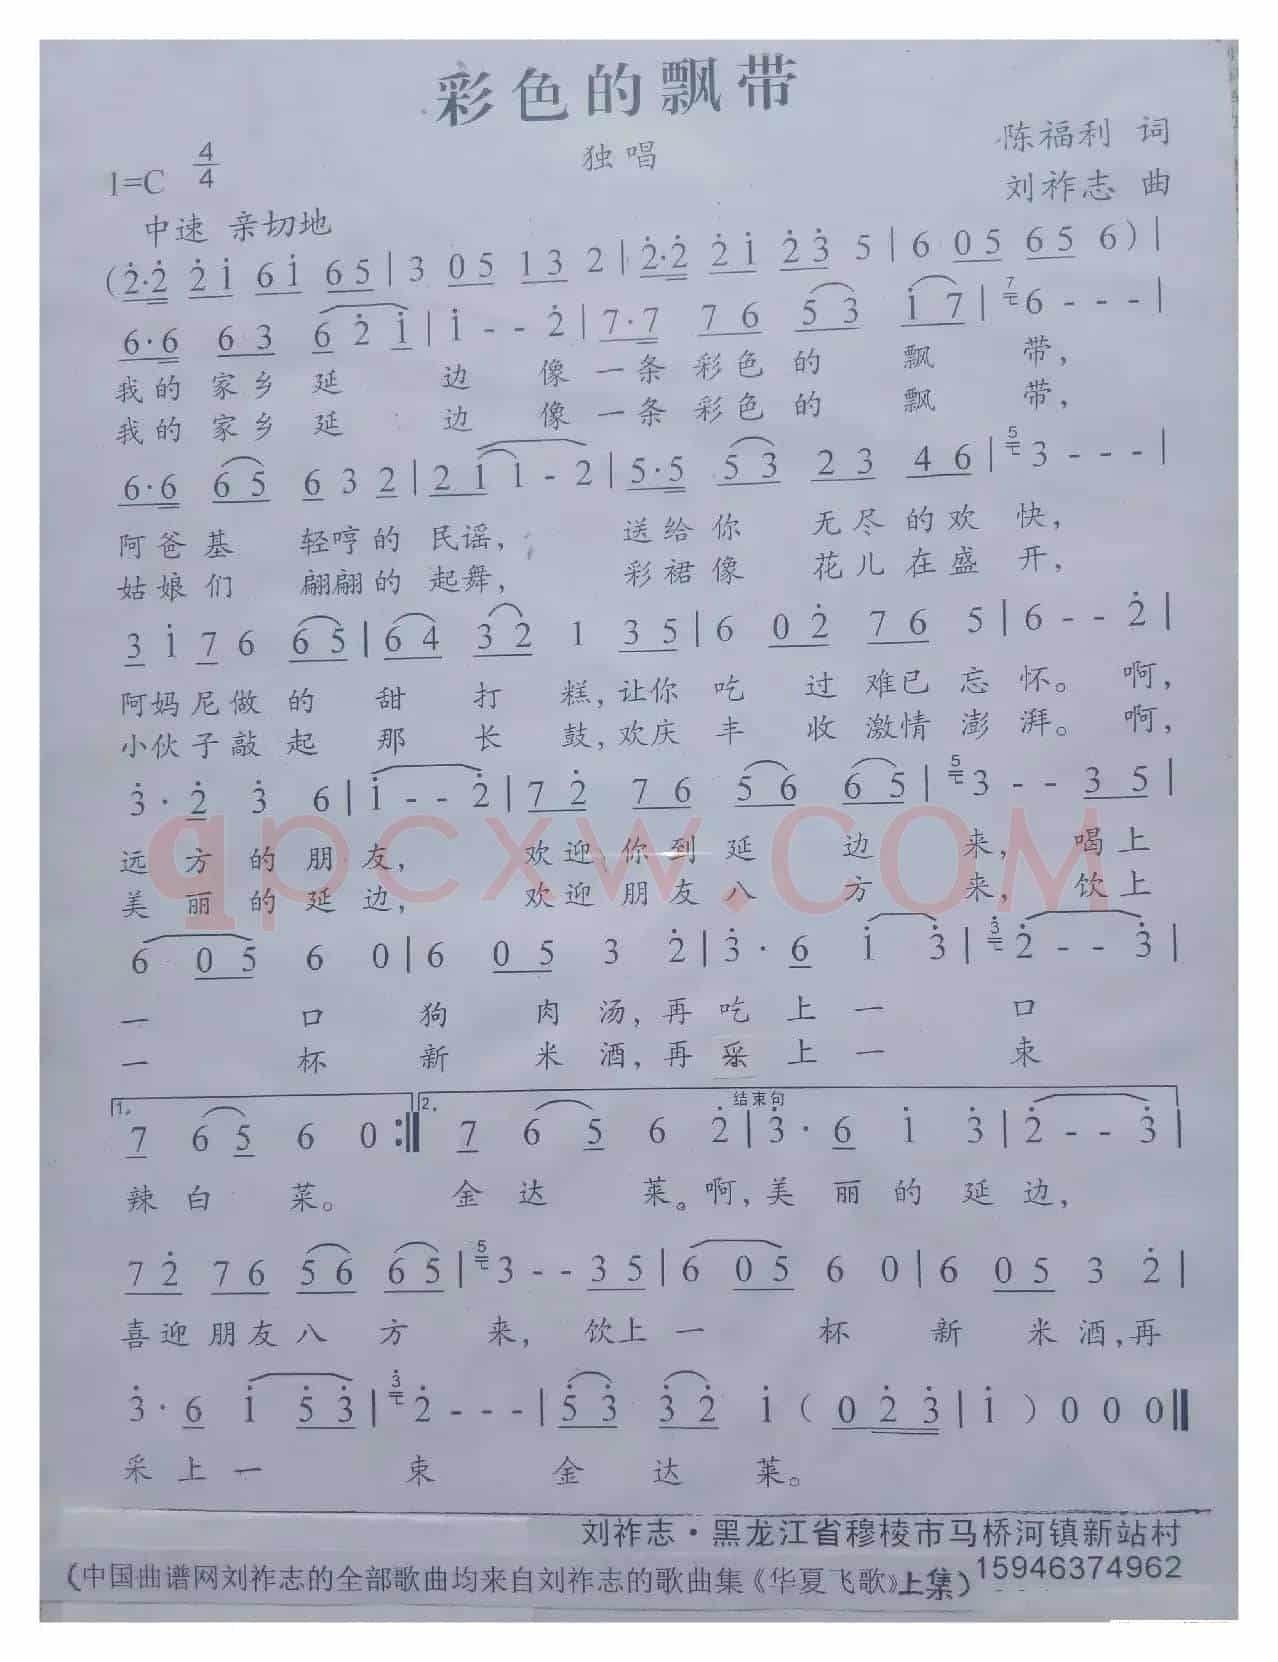 彩色的飘带
独唱
陈福利 词
1=C 4/4
刘祚志 曲
中速 亲切地
(2̇·2̇ 2̇1̇ 61̇ 65 | 3 05 13 2 | 2̇·2̇ 2̇1̇ 2̇3̇ 5 | 6 05 65 6) |
6·6 63 6 2̇ 1̇ | 1̇ - - 2̇ | 7·7 76 53 1̇7 | 7 6 - - - |
我的 家乡 延 边 像 一条 彩色 的 飘 带,
我的 家乡 延 边 像 一条 彩色 的 飘 带,
6·6 65 6 3 2 | 2 1 1 - 2 | 5·5 53 23 46 | 5 3 - - - |
阿爸 基 轻哼的 民谣, 送给 你 无尽 的欢 快,
姑娘 们 翩翩的 起舞, 彩裙 像 花儿 在盛 开,
3 1̇ 7 6 65 | 64 32 1 35 | 6 02̇ 76 5 | 6 - - 2̇ |
阿妈尼做的 甜 打 糕,让你 吃 过 难已 忘 怀。 啊,
小伙子敲起 那 长 鼓,欢庆 丰 收 激情 澎 湃。 啊,
3̇· 2̇ 3̇ 6 | 1̇ - - 2̇ | 72̇ 76 56 65 | 5 3 - - 35 |
远 方 的 朋 友, 欢迎 你到 延 边 来, 喝上
美 丽 的 延 边, 欢迎 朋友 八 方 来, 饮上
6 05 6 0 | 6 05 3 2̇ | 3̇· 6 1̇ 3̇ | 3̇ 2̇ - - 3̇ |
一 口 狗 肉 汤,再 吃 上 一 口
一 杯 新 米 酒,再 采 上 一 束
1. 2. 结束句
7 6 5 6 0 :‖ 7 6 5 6 2̇ | 3̇· 6 1̇ 3̇ | 2̇ - - 3̇ |
辣 白 菜。 金 达 莱。啊,美 丽 的 延 边,
72̇ 76 56 65 | 5 3 - - 35 | 6 05 6 0 | 6 05 3 2̇ |
喜迎 朋友 八 方 来, 饮上 一 杯 新 米 酒,再
3̇· 6 1̇ 5̇3̇ | 3̇ 2̇ - - - | 5̇3̇ 3̇2̇ 1̇ ( 0 2̇ 3̇ | 1̇ ) 0 0 0 ‖
采 上 一 束 金 达 莱。
刘祚志·黑龙江省穆棱市马桥河镇新站村
(中国曲谱网刘祚志的全部歌曲均来自刘祚志的歌曲集《华夏飞歌》上集) 15946374962
qpcxw.COM